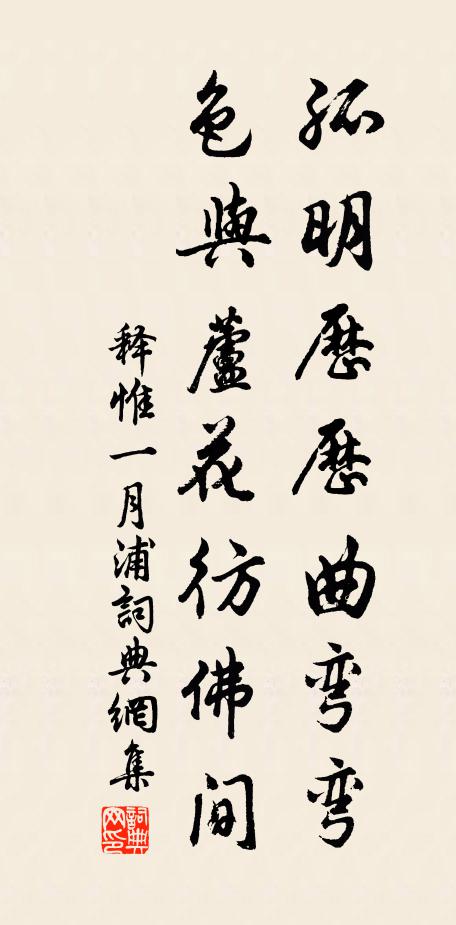 孤明歷歷曲弯弯
色與蘆花彷佛間
释惟一月浦詞典網集
詞典网印